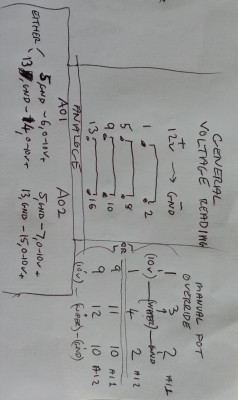 GENERAL
VOLTAGE READING
+ -
12V → GND
1. .2
5. .8
9. .10
13. .16
MANUAL POT
OVERRIDE
1 3 2 A11
(10V) - (WIPER) - GND
1 4 2 A12
OR
5
9 11 10 A12
9 12 10 A12
(10V) - (WIPER) - (GND)
ANALOGE
A01 A02
EITHER:
5,GND - 6,0-10V+ 5,GND - 7,0-10V+
13,GND - 14,0-10V+ 13,GND - 15,0-10V+